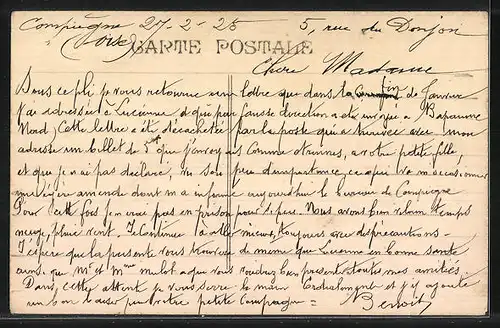 Compiegne 27-2-25 5, rue du Donjon
(Oise)
CARTE POSTALE
Chere Madame
Sous ce pli je vous retourne une lettre que dans la fin de Janvier
j'ai adressée à Lucienne et qui par fausse direction a été envoyée a Bapaume
Nord, Cette lettre a été décachetée par la poste qui a trouvée avec mon
adresse un billet de 5 que j'envoyais comme étrennes, a votre petite fille,
et que je n'ai pas déclaré, vu son peu d'importance, ce qui va m'occasionner
une amende dont m'a informé aujourdhui le bureau de Compiegne
Pour cette fois je n'irai pas en prison pour si peu. Nous avons bien vilain temps
neige, pluie vent. Je continue à aller mieux, toujours avec des précautions-
J'espère que la présente vous trouvera de meme que Lucienne en bonne santé
ainsi que Mr et Mme mulot a que vous voudrez bien presenter toutes mes amitiés.
Dans, cette attente je vous serre la main cordialement et j'y ajoute
un bon baiser pour votre petite Compagne =
Benoit